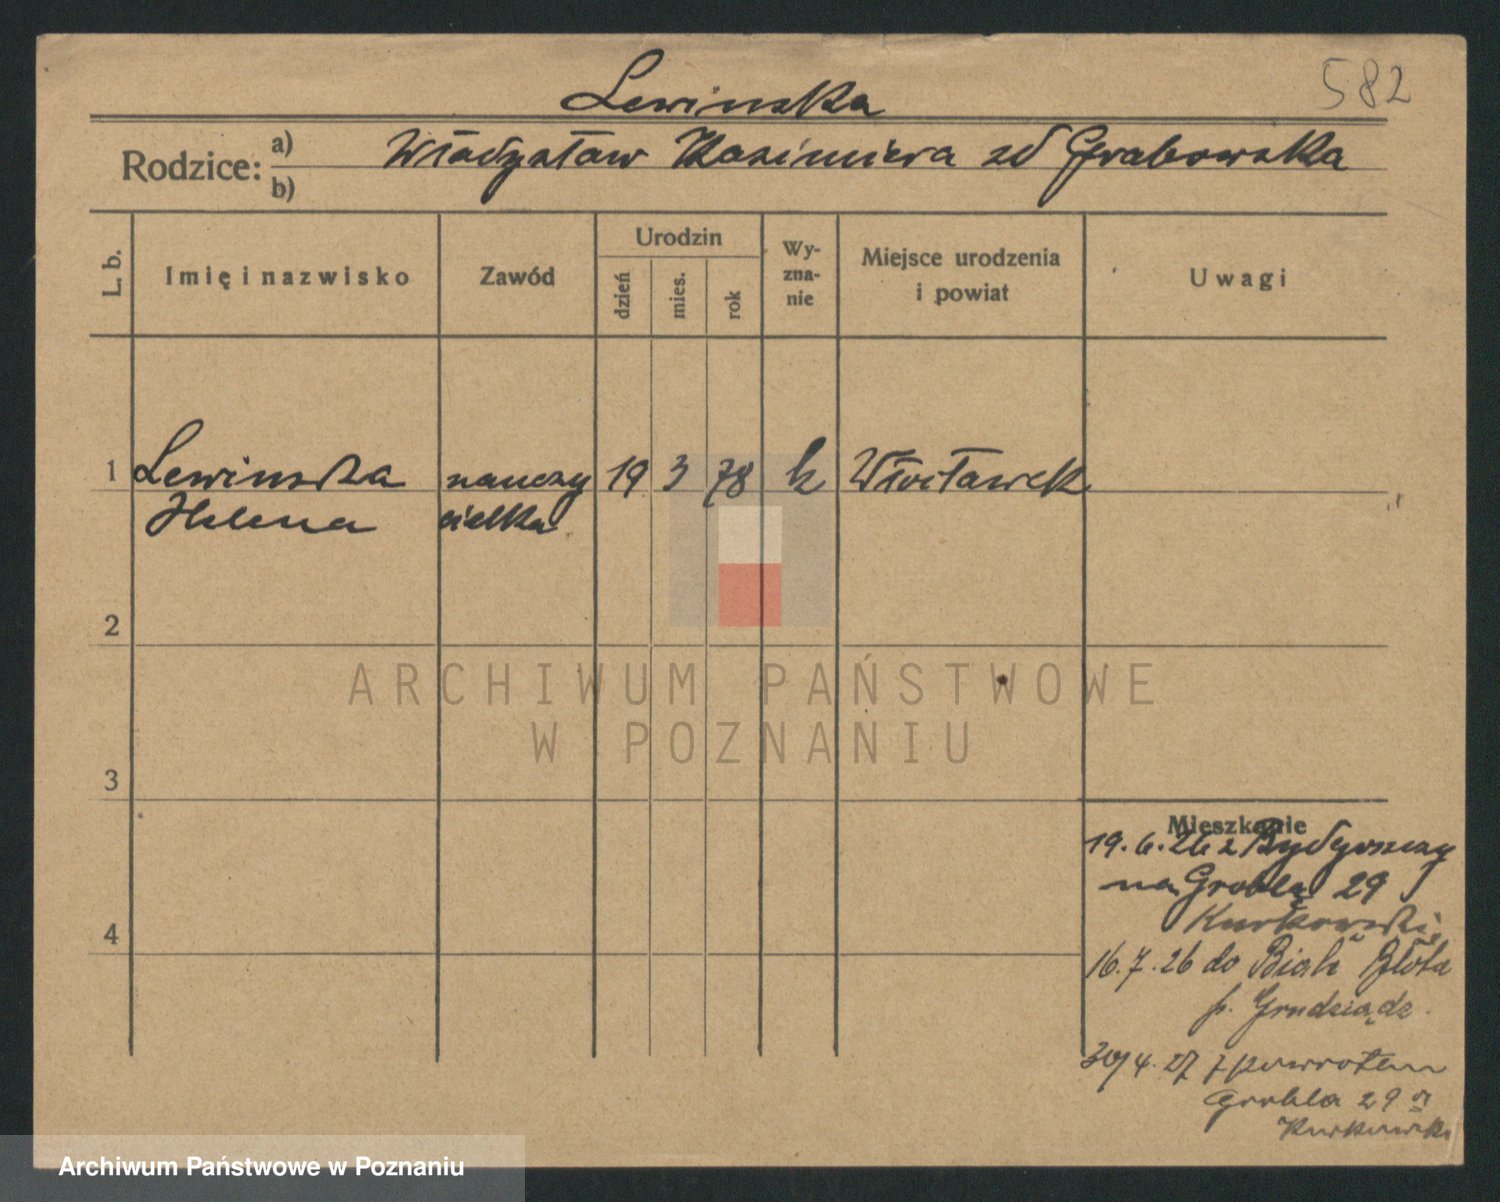 582
Lewinska
Rodzice: a) Władysław Kazimiera zd Grabowska
b)
L. b.
Imię i nazwisko
Zawód
Urodzin
dzień
mies.
rok
Wy-
zna-
nie
Miejsce urodzenia
i powiat
Uwagi
1 Lewinska nauczy 19 3 78 k Włocławek
Helena cielka
2
3
4
Mieszkanie
19.6.26 z Bydgoszczy
na Grobla 29
Kurkowski
16.7.26 do Białe Błota
p. Grudziądz.
30/4.27 z powrotem
Grobla 29
Kurkowski
ARCHIWUM PAŃSTWOWE
W POZNANIU
Archiwum Państwowe w Poznaniu